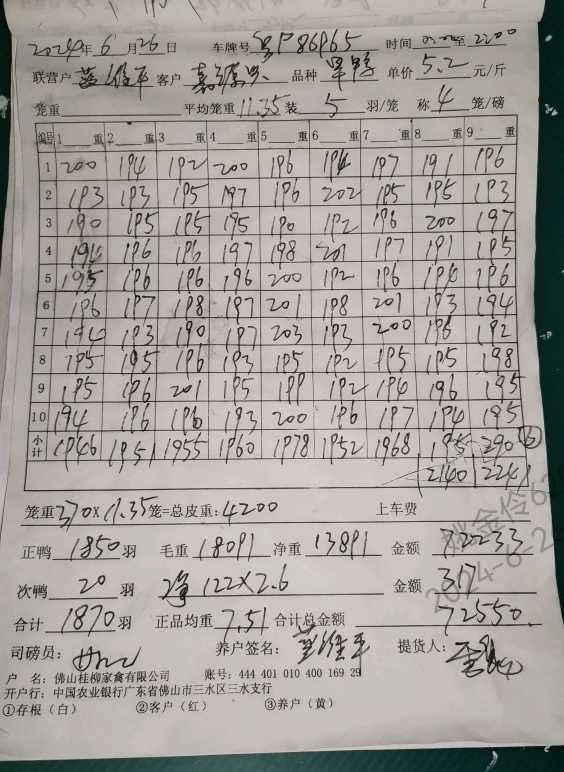 2024年6月26日 车牌号 粤P86P65 时间 至 2200
联营户 客户 品种 单价 5.2 元/斤
笼重 平均笼重 11.35 装 5 羽/笼 称 4 笼/磅
编号 1 重 2 重 3 重 4 重 5 重 6 重 7 重 8 重 9 重
1 200 194 192 200 196 194 197 191 196
2 193 193 195 197 196 202 195 195 193
3 190 195 195 195 190 192 196 200 197
4 194 196 196 197 198 201 197 191 195
5 195 196 196 196 200 192 196 194 196
6 196 197 198 197 201 198 201 193 194
7 194 193 190 197 203 193 200 196 192
8 195 195 196 193 195 192 195 195 198
9 195 196 201 195 199 192 194 196 195
10 194 196 196 193 200 196 197 194 195
小计 1946 1951 1955 1960 1978 1952 1968 195 290
2140 2241
笼重 370 × 11.35 笼=总皮重: 4200 上车费
正鸭 1850 羽 毛重 18091 净重 13891 金额 72233
次鸭 20 羽 净 122×2.6 金额 317
合计 1870 羽 正品均重 7.51 合计总金额 72550.
司磅员: 养户签名: 提货人:
户 名: 佛山桂柳家禽有限公司 账号: 444 401 010 400 169 29
开户行: 中国农业银行广东省佛山市三水区三水支行
①存根（白） ②客户（红） ③养户（黄）